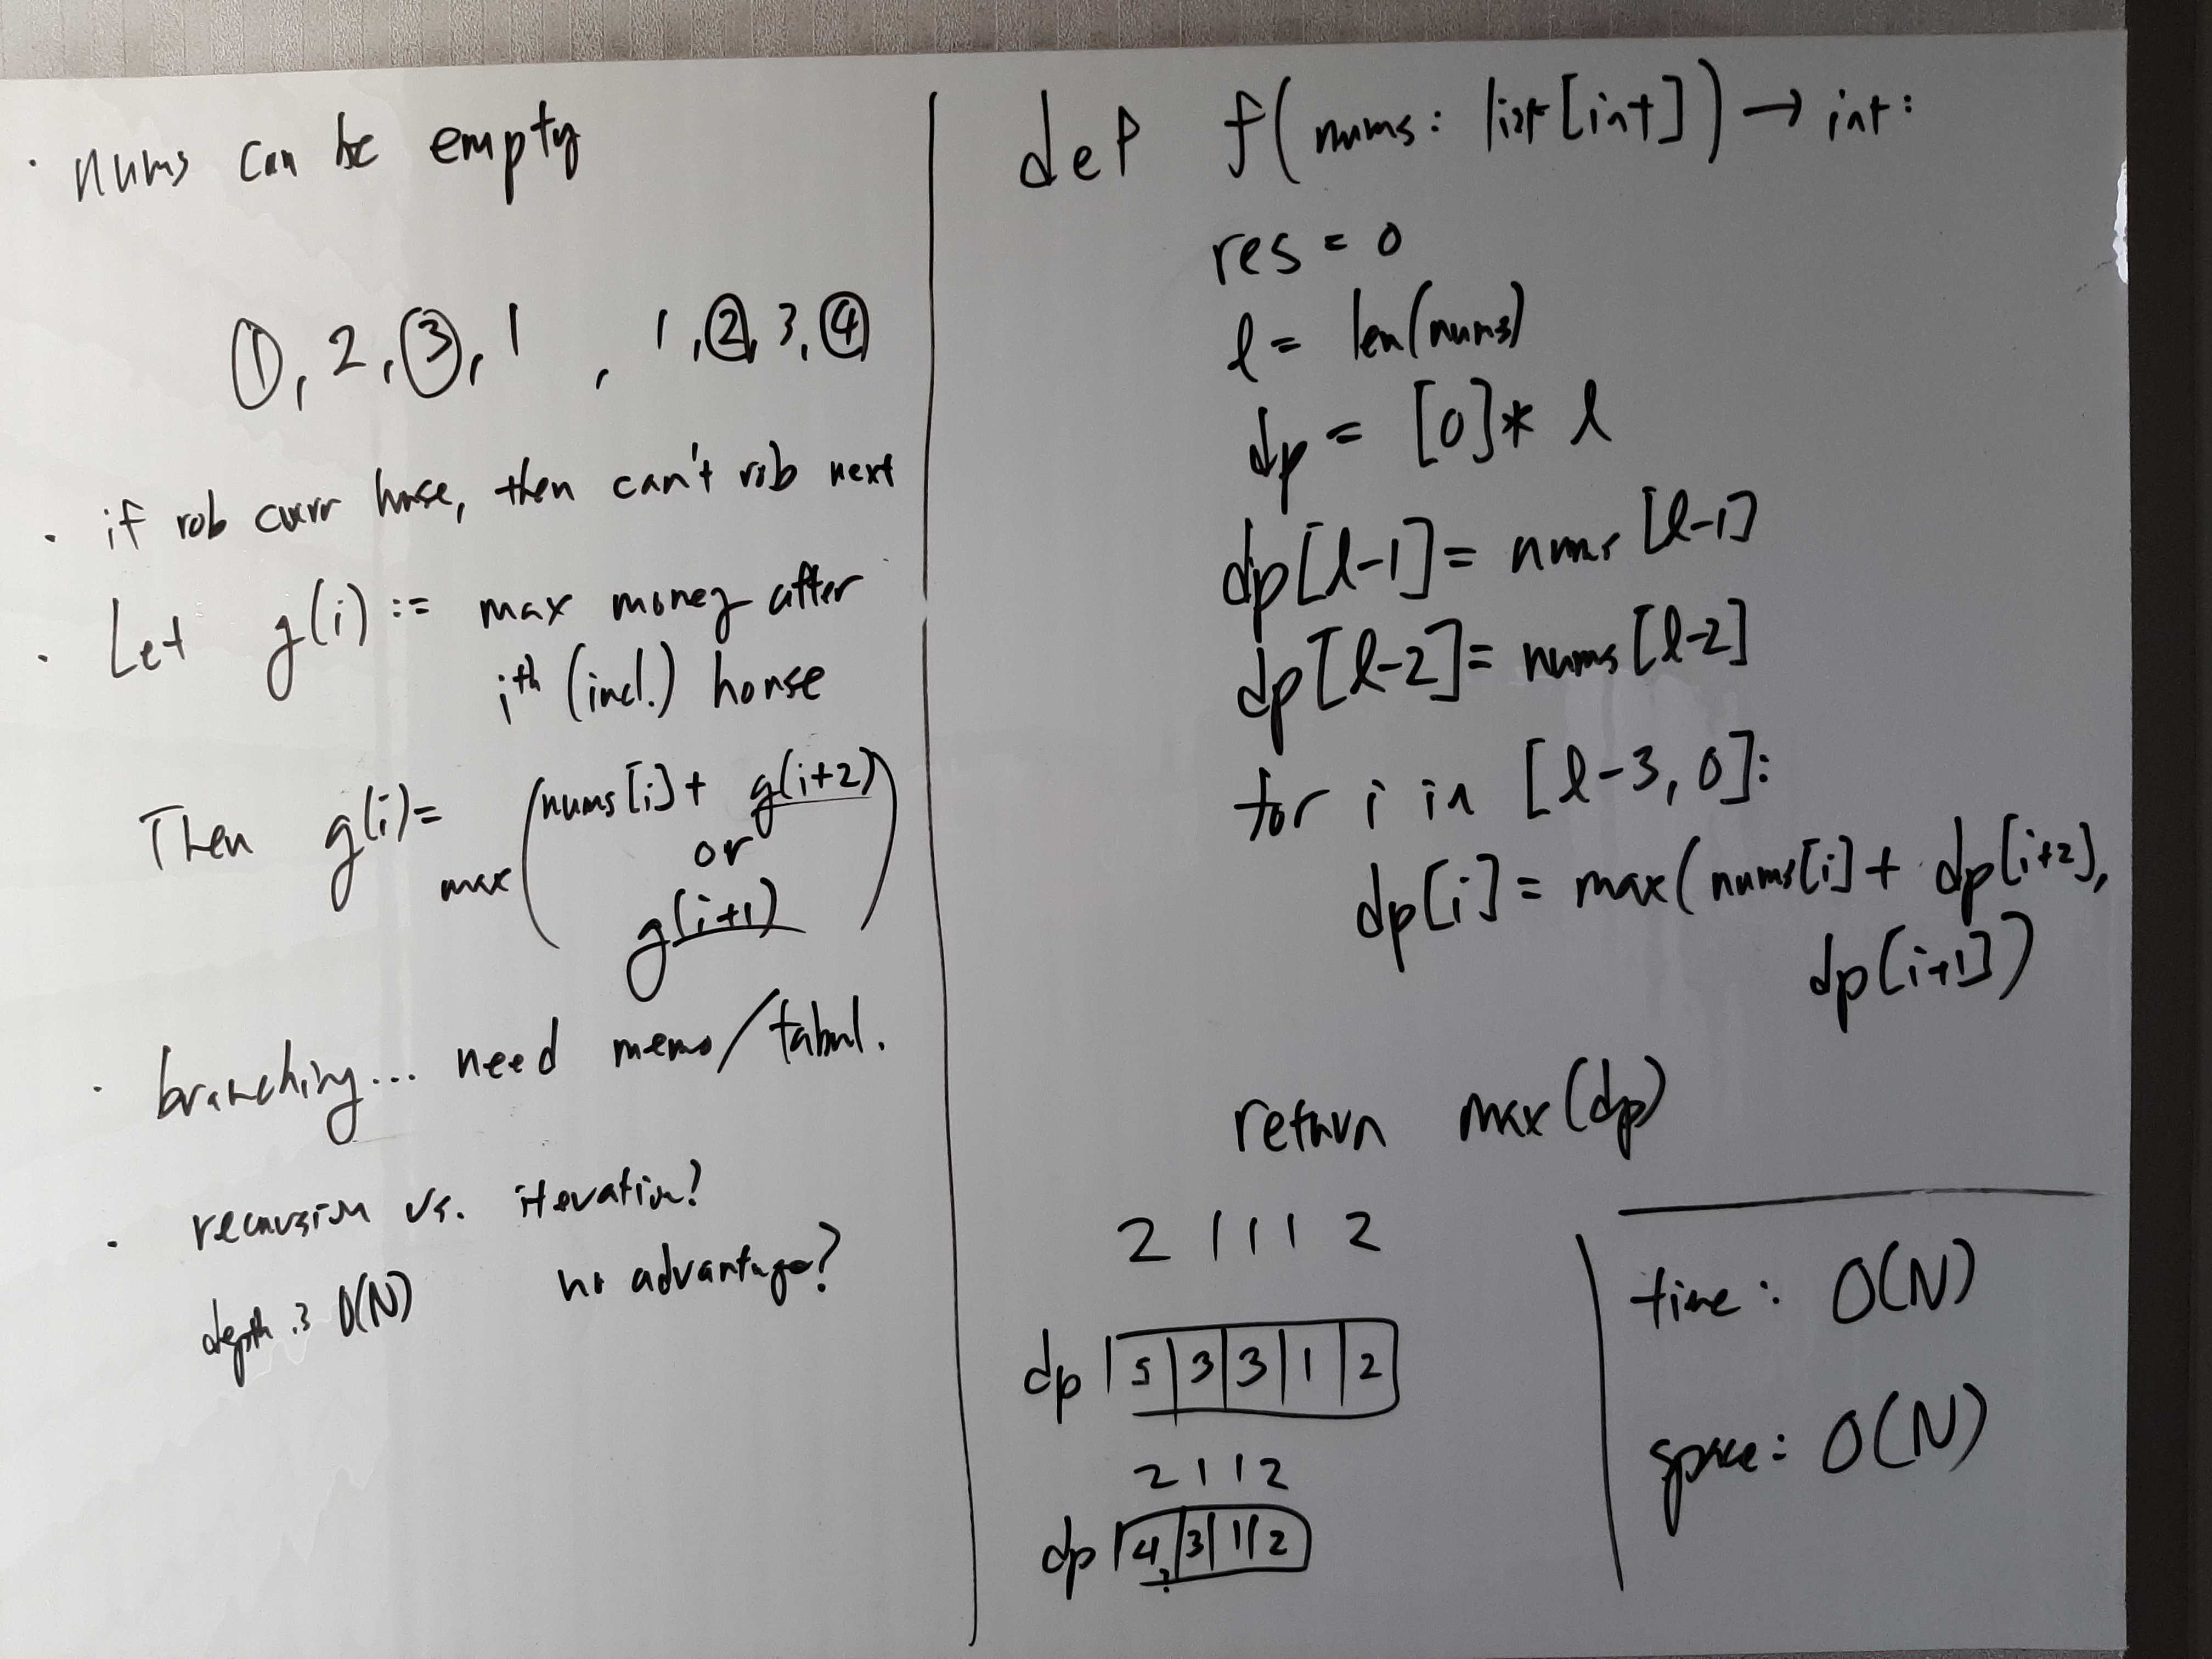 · nums can be empty
1, 2, 3, 1 , 1, 2, 3, 4
· if rob curr house, then can't rob next
· Let g(i) := max money after
ith (incl.) house
Then g(i) = max ( nums[i] + g(i+2)
or
g(i+1) )
· branching... need memo/tabul.
· recursion vs. iteration?
depth is O(N) no advantage?
def f(nums: list[int]) → int:
res = 0
l = len(nums)
dp = [0] * l
dp[l-1] = nums[l-1]
dp[l-2] = nums[l-2]
for i in [l-3, 0]:
dp[i] = max(nums[i] + dp[i+2],
dp[i+1])
return max(dp)
2 1 1 1 2
dp | 5 | 3 | 3 | 1 | 2 |
2 1 1 2
dp | 4 | 3 | 1 | 2 |
time: O(N)
space: O(N)